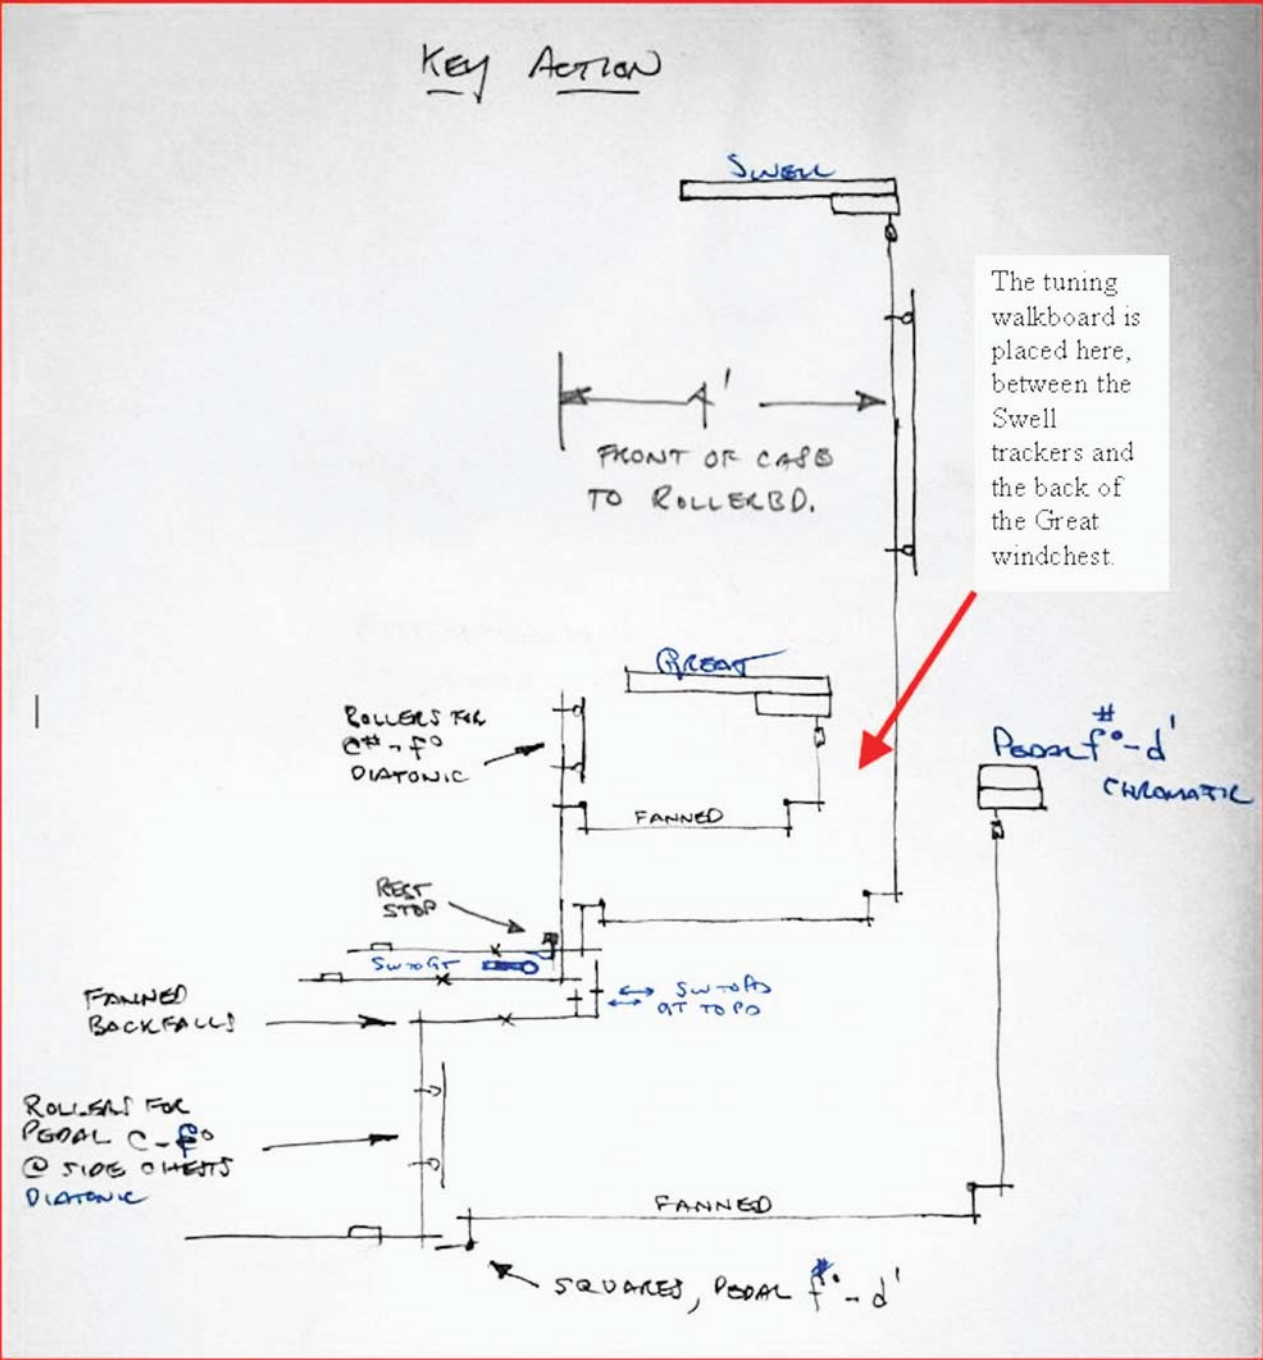 KEY ACTION
SWELL
The tuning
walkboard is
placed here,
between the
Swell
trackers and
the back of
the Great
windchest.
4'
FRONT OF CASE
TO ROLLERBD.
GREAT
ROLLERS FOR
C# - f°
DIATONIC
PEDAL f#° - d'
CHROMATIC
FANNED
REST
STOP
SW TO GT
SW TO PD
GT TO PD
FANNED
BACKFALLS
ROLLERS FOR
PEDAL C - f°
@ SIDE CHESTS
DIATONIC
FANNED
SQUARES, PEDAL f#° - d'